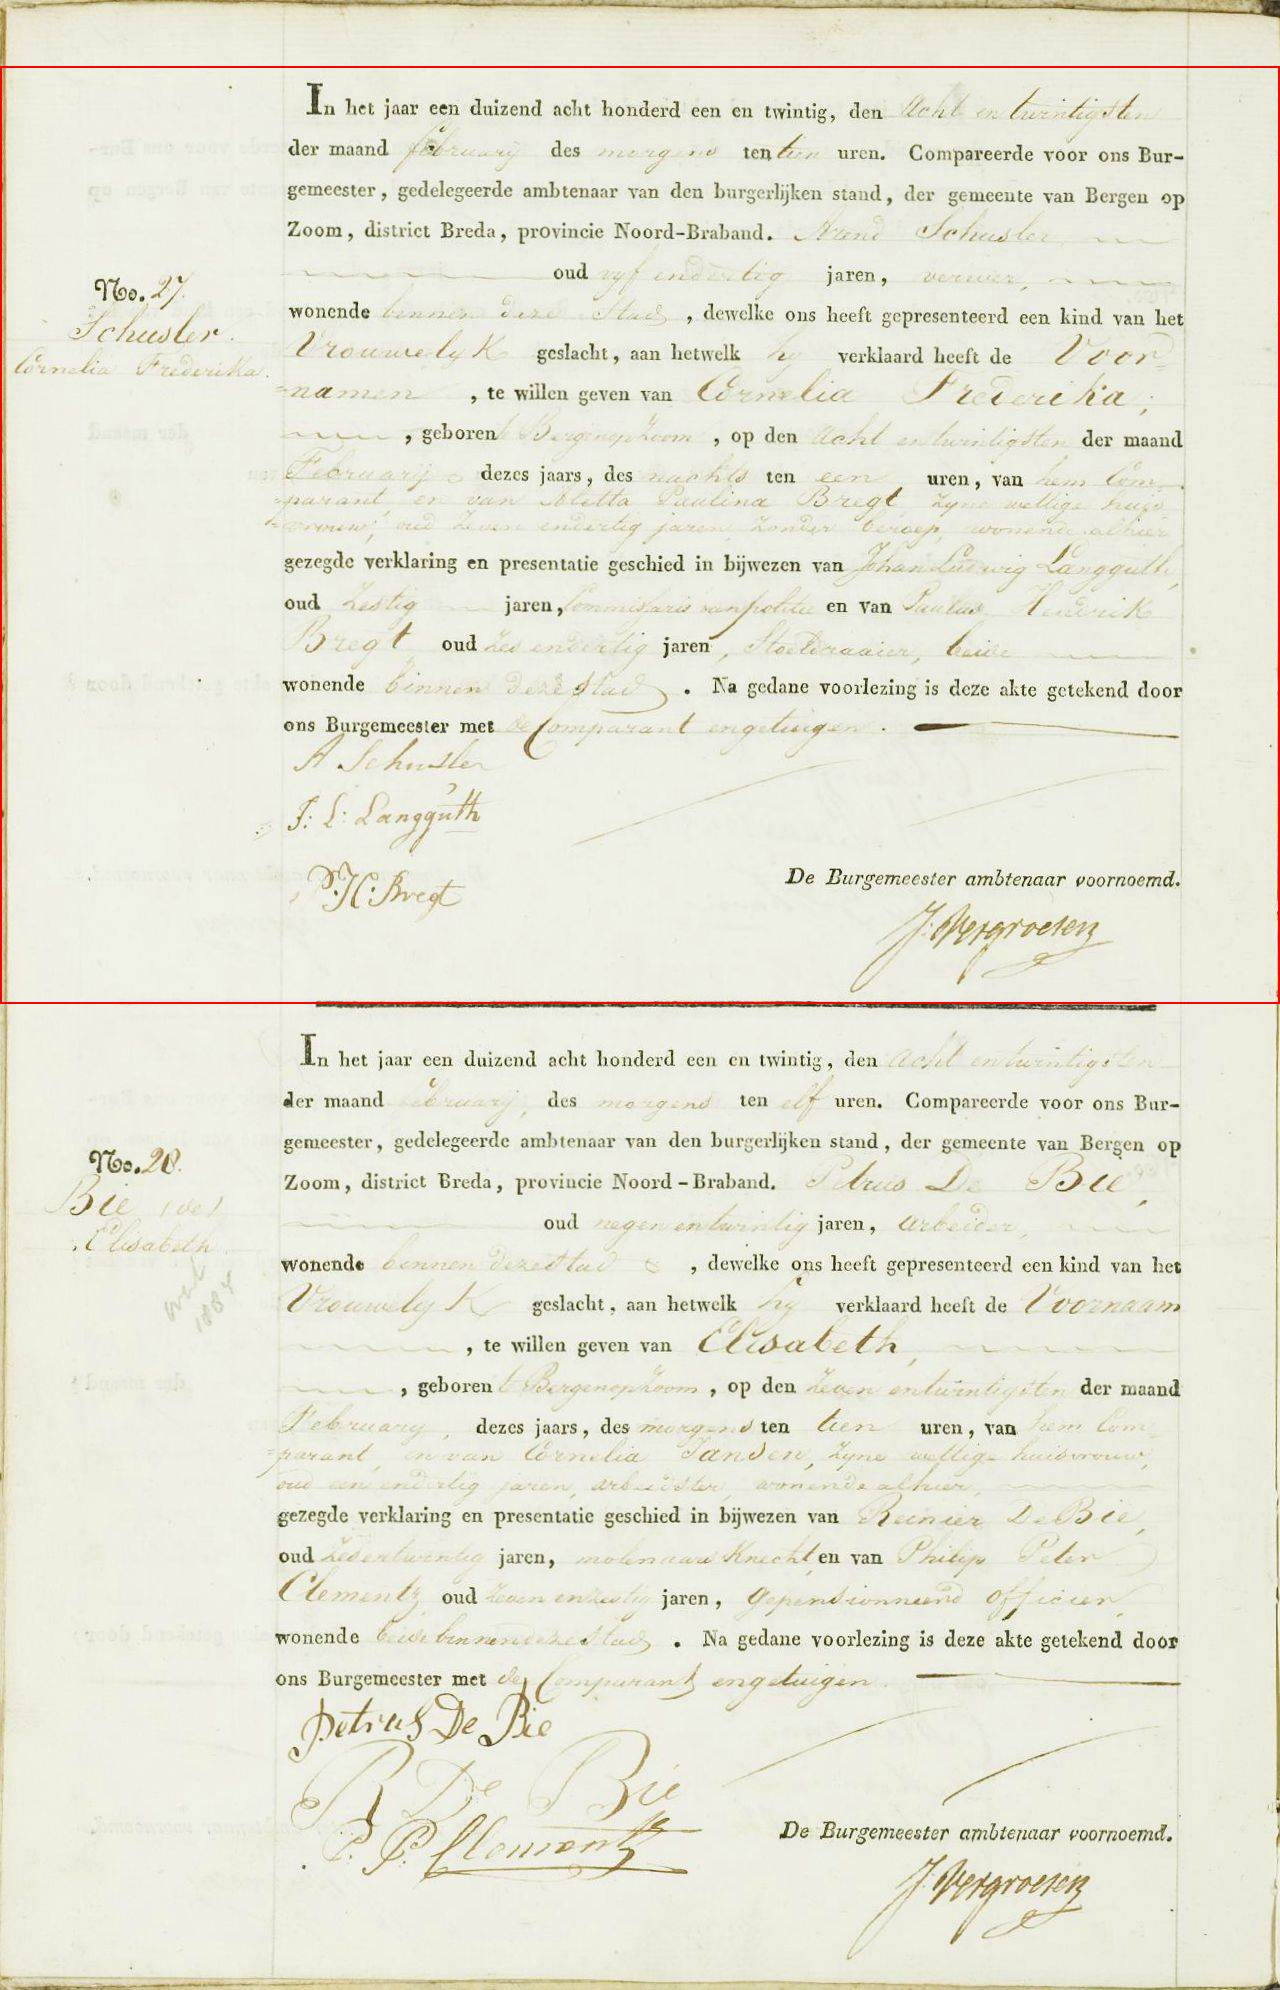 In het jaar een duizend acht honderd een en twintig, den acht en twintigsten
der maand february des morgens ten tien uren. Compareerde voor ons Bur-
gemeester, gedelegeerde ambtenaar van den burgerlijken stand, der gemeente van Bergen op
Zoom, district Breda, provincie Noord-Braband. Arend Schusler
oud vyf endertig jaren, verwer,
No. 27.
Schusler.
Cornelia Frederika.
wonende binnen deze Stad, dewelke ons heeft gepresenteerd een kind van het
Vrouwelyk geslacht, aan hetwelk hy verklaard heeft de Voor=
=namen, te willen geven van Cornelia Frederika,
, geboren te Bergenopzoom, op den acht entwintigsten der maand
February dezes jaars, des nachts ten een uren, van hem Com=
=parant, en van Aletta Paulina Bregt, zyne wettige huis=
=vrouw, oud zeven endertig jaren, zonder beroep, wonende alhier
gezegde verklaring en presentatie geschied in bijwezen van Johan Ludwig Langguth,
oud zestig jaren, Commissaris van politie en van Paulus Hendrik
Bregt oud zes endertig jaren, Stoeldraaier, beide
wonende binnen deze stad. Na gedane voorlezing is deze akte getekend door
ons Burgemeester met de Comparant engetuigen.
A Schusler
J: L: Langguth
P: H: Bregt
De Burgemeester ambtenaar voornoemd.
J. Vergroesen
In het jaar een duizend acht honderd een en twintig, den acht entwintigsten
der maand february, des morgens ten elf uren. Compareerde voor ons Bur-
gemeester, gedelegeerde ambtenaar van den burgerlijken stand, der gemeente van Bergen op
Zoom, district Breda, provincie Noord-Braband. Petrus De Bie,
oud negen entwintig jaren, arbeider,
No. 28.
Bie (de)
Elisabeth
1884
wonende binnen dezestad, dewelke ons heeft gepresenteerd een kind van het
Vrouwelyk geslacht, aan hetwelk hy verklaard heeft de Voornaam
, te willen geven van Elisabeth,
, geboren te Bergenopzoom, op den zeven entwintigsten der maand
February, dezes jaars, des morgens ten tien uren, van hem Com=
=parant, en van Cornelia Jansen, zyne wettige huisvrouw,
oud een endertig jaren, arbeidster, wonende alhier,
gezegde verklaring en presentatie geschied in bijwezen van Reinier De Bie,
oud zesentwintig jaren, molenaars Knecht, en van Philip Peter
Clementz oud zeven enzestig jaren, gepensionneerd officier,
wonende beide binnen deze stad. Na gedane voorlezing is deze akte getekend door
ons Burgemeester met de Comparant engetuigen.
Petrus De Bie
R De Bie
P. P. Clementz
De Burgemeester ambtenaar voornoemd.
J. Vergroesen